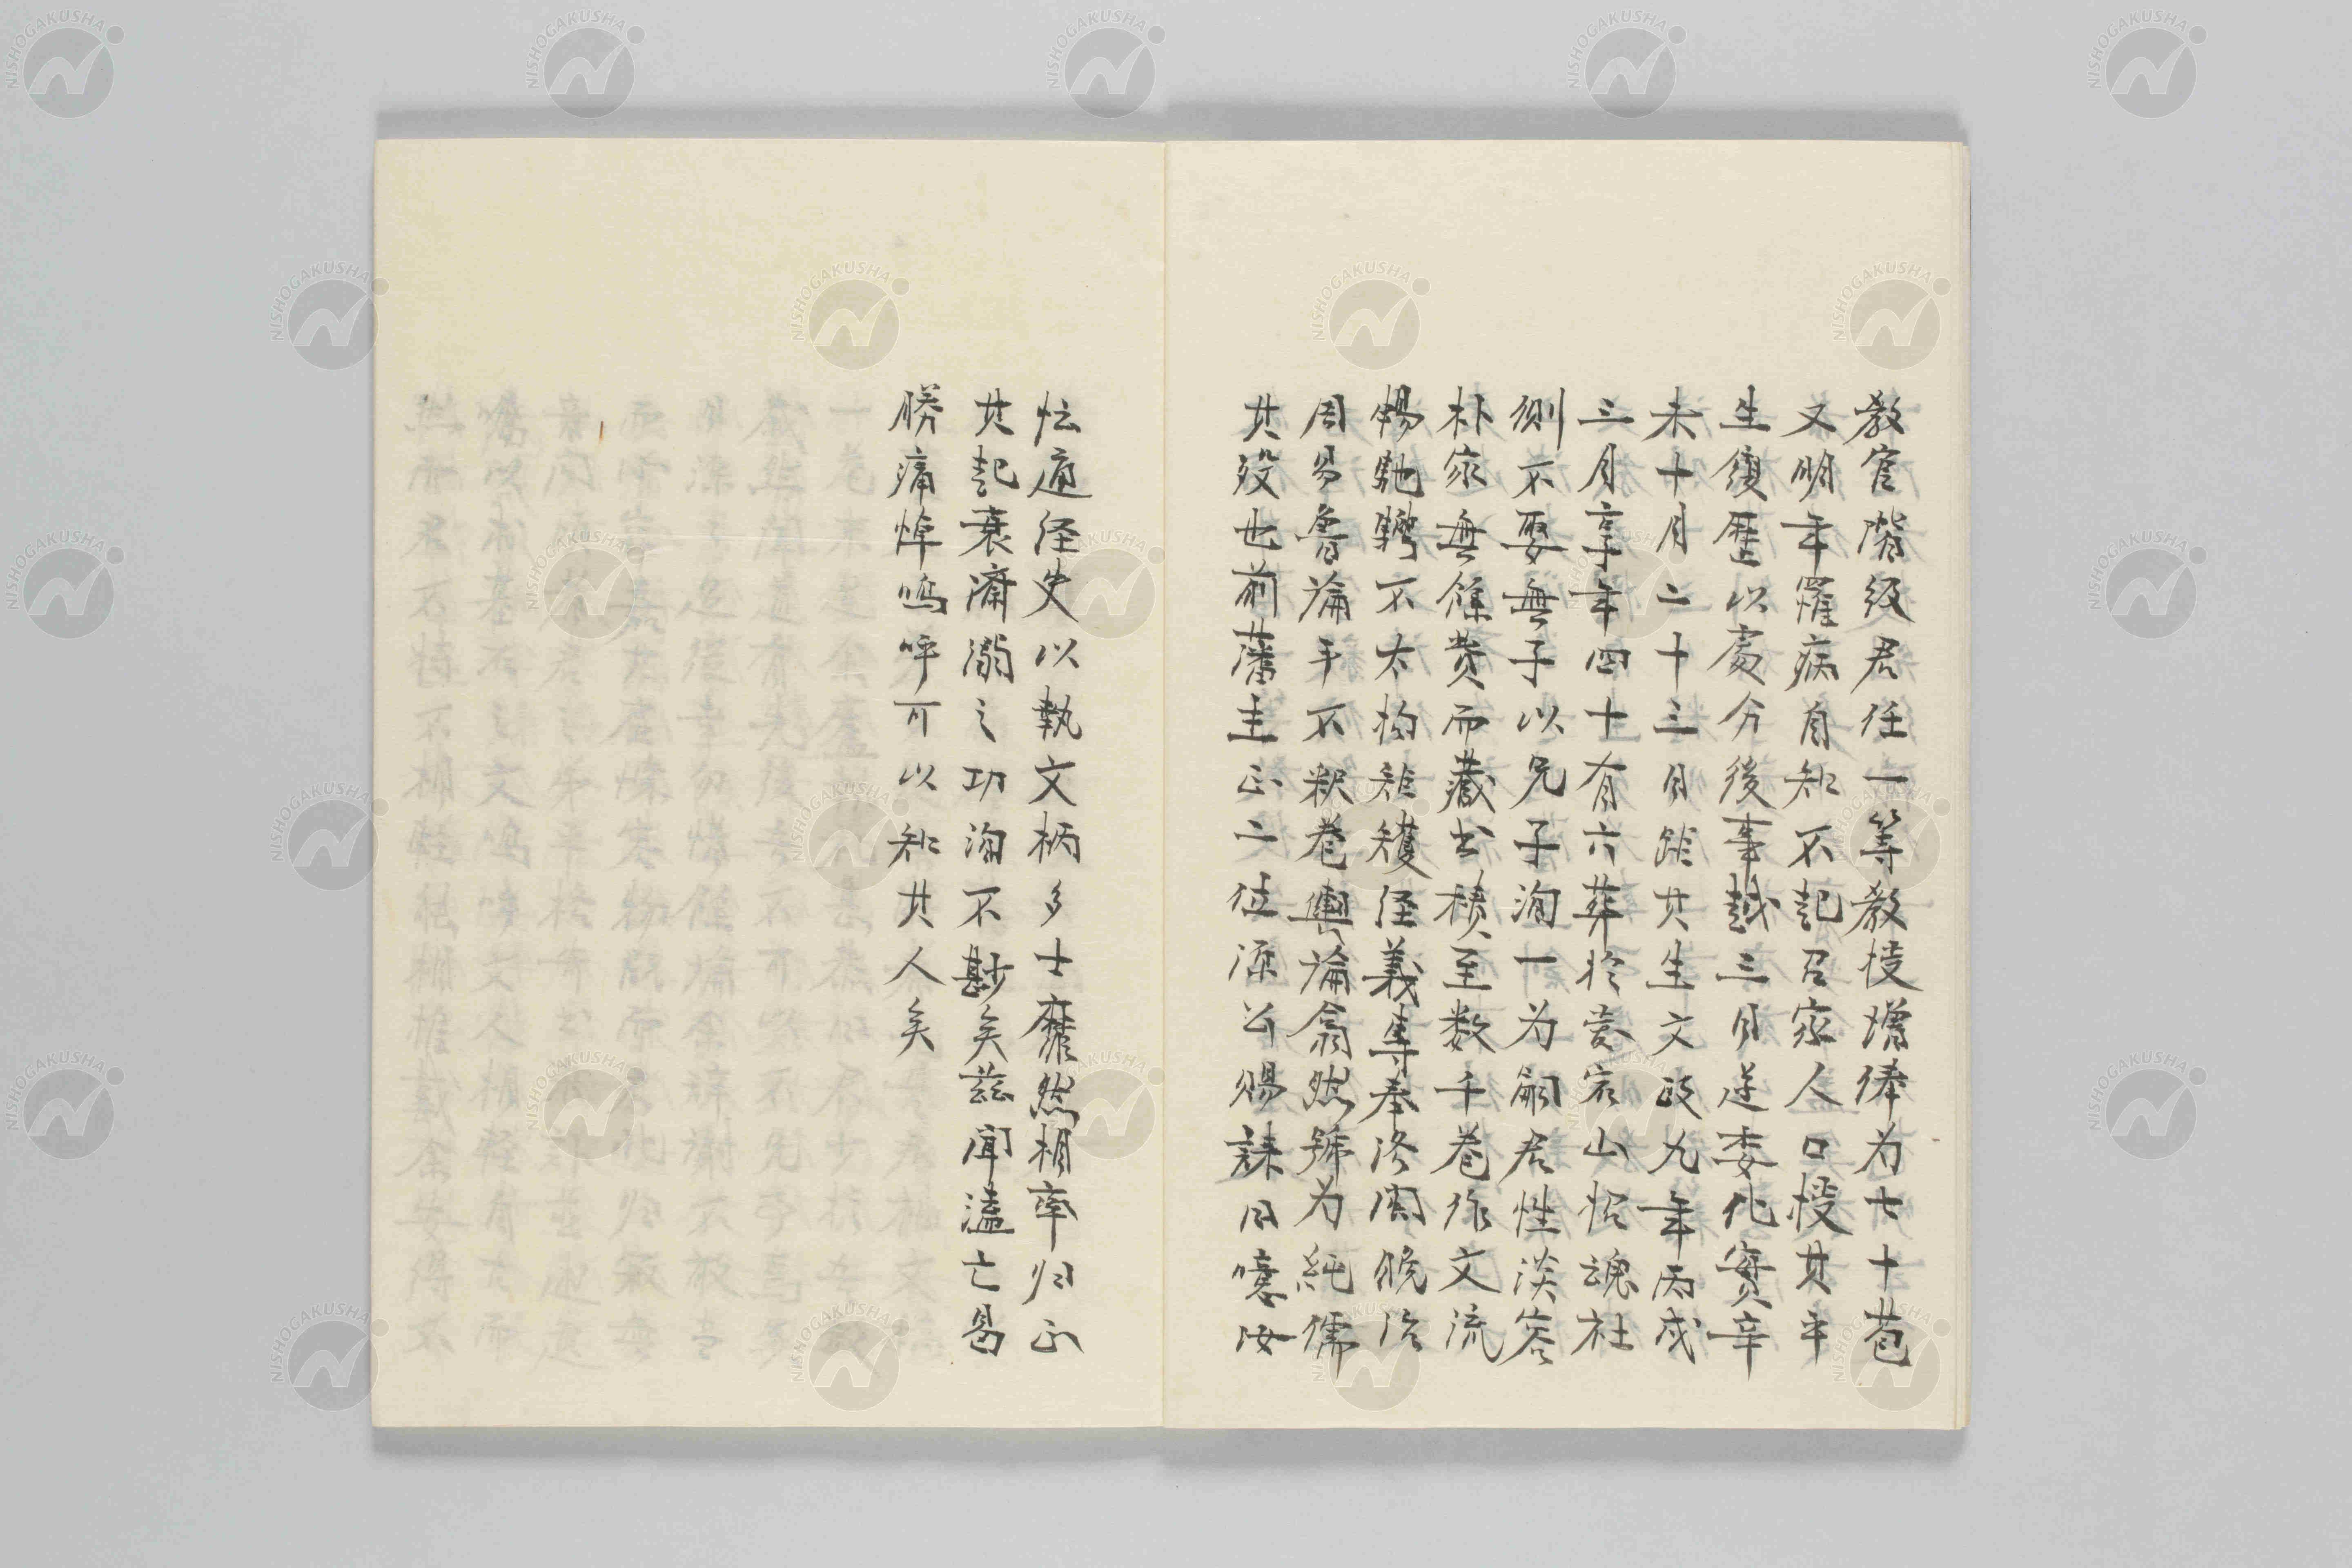 教官階級君任一等教授増俸为七十苞
又明年罹病自知不起召家人口授其平
生復歴以處分後事越三月逆委化實辛
未十月二十三日跡其生文政九年丙戌
三月享年四十有六葬於岩山招魂社
側不娶無子以兄子洵一为嗣君性淡容
朴家無餘貲而蔵书積至数千巻作文流
暢馳騁不太拘経義専奉洛閩晩治
周易魯論手不釈巻輿論翕然稱为純儒
其殁也前藩主正二位源公賜誄曰噫汝
怯庵経史以執文柄多士靡然相率归正
其起衰済溺之功洵不尠矣茲聞溘亡曷
勝痛悼嗚呼可以知其人矣
NISHOGAKUSHA